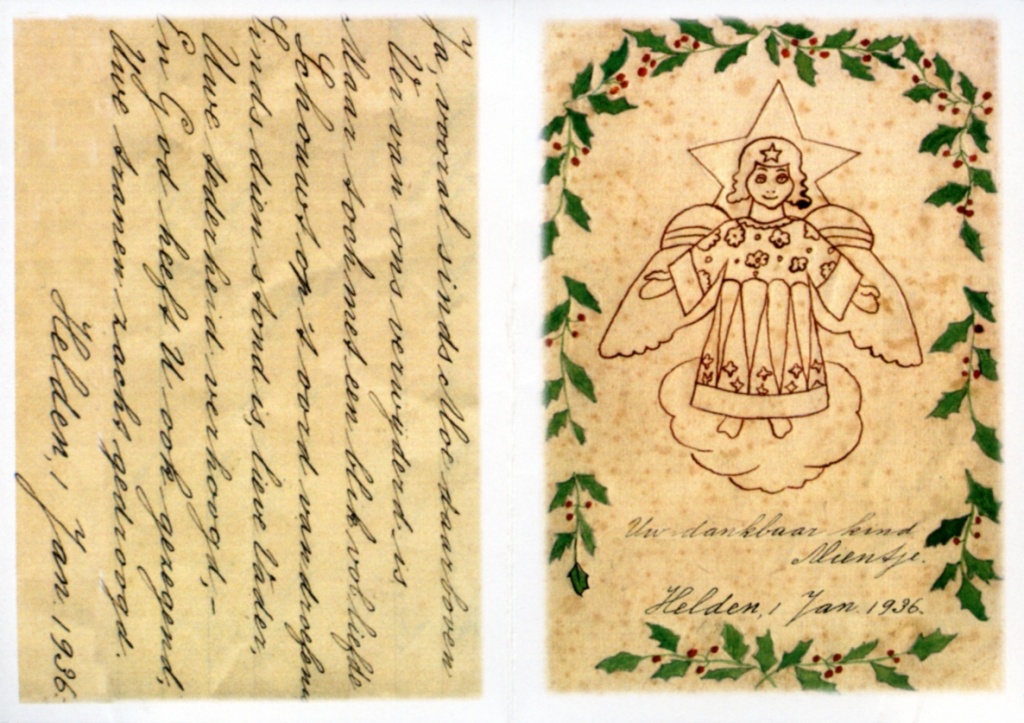 Ja, vooral sinds Moe daarboven
Ver van ons verwijderd is
Maar toch met een blik vol liefde
Schouwt op 't oord van droefenis
Sinds dien stond is, lieve Vader,
Uwe tederheid verhoogd,-
En God heeft U ook gezegend,
Uwe tranen zacht gedroogd.
Helden, 1 Jan. 1936.
Uw dankbaar kind
Mientje.
Helden, 1 Jan. 1936.